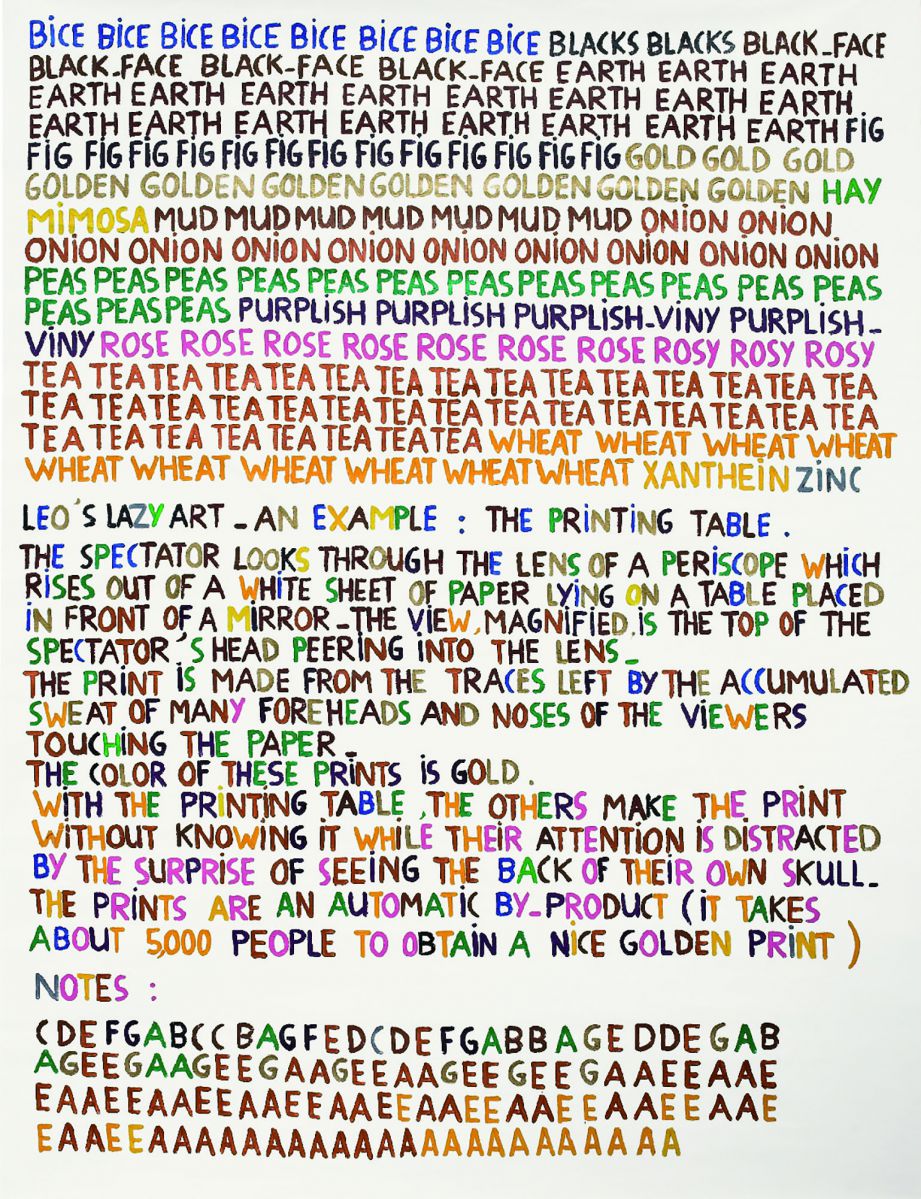 BiCE BiCE BiCE BiCE BiCE BiCE BiCE BiCE BLACKS BLACKS BLACK-FACE
BLACK-FACE BLACK-FACE BLACK-FACE EARTH EARTH EARTH
EARTH EARTH EARTH EARTH EARTH EARTH EARTH EARTH
EARTH EARTH EARTH EARTH EARTH EARTH EARTH EARTH FiG
FiG FiG FiG FiG FiG FiG FiG FiG FiG FiG FiG FiG FiG GOLD GOLD GOLD
GOLDEN GOLDEN GOLDEN GOLDEN GOLDEN GOLDEN GOLDEN HAY
MiMOSA MUD MUD MUD MUD MUD MUD MUD ONiON ONiON
ONiON ONiON ONiON ONiON ONiON ONiON ONiON ONiON ONiON
PEAS PEAS PEAS PEAS PEAS PEAS PEAS PEAS PEAS PEAS PEAS PEAS
PEAS PEAS PEAS PURPLiSH PURPLiSH PURPLiSH-ViNY PURPLiSH-
ViNY ROSE ROSE ROSE ROSE ROSE ROSE ROSE ROSY ROSY ROSY
TEA TEA TEA TEA TEA TEA TEA TEA TEA TEA TEA TEA TEA TEA TEA
TEA TEA TEA TEA TEA TEA TEA TEA TEA TEA TEA TEA TEA TEA TEA
TEA TEA TEA TEA TEA TEA TEA TEA WHEAT WHEAT WHEAT WHEAT
WHEAT WHEAT WHEAT WHEAT WHEAT WHEAT XANTHEiN ZiNC
LEO'S LAZY ART - AN EXAMPLE : THE PRiNTiNG TABLE .
THE SPECTATOR LOOKS THROUGH THE LENS OF A PERiSCOPE WHiCH
RiSES OUT OF A WHiTE SHEET OF PAPER LYiNG ON A TABLE PLACED
iN FRONT OF A MiRROR - THE ViEW, MAGNiFiED, iS THE TOP OF THE
SPECTATOR'S HEAD PEERiNG iNTO THE LENS -
THE PRiNT iS MADE FROM THE TRACES LEFT BY THE ACCUMULATED
SWEAT OF MANY FOREHEADS AND NOSES OF THE ViEWERS
TOUCHiNG THE PAPER -
THE COLOR OF THESE PRiNTS iS GOLD .
WiTH THE PRiNTiNG TABLE , THE OTHERS MAKE THE PRiNT
WiTHOUT KNOWiNG iT WHiLE THEiR ATTENTiON iS DiSTRACTED
BY THE SURPRiSE OF SEEiNG THE BACK OF THEiR OWN SKULL -
THE PRiNTS ARE AN AUTOMATiC BY-PRODUCT ( iT TAKES
ABOUT 5,000 PEOPLE TO OBTAiN A NiCE GOLDEN PRiNT )
NOTES :
CDEFGABCCBAGFEDCDEFGABBAGEDDEGAB
AGEEGAAGEEGAAGEEAAGEEGEEGAAEEAAE
EAAEEAAEEAAEEAAEEAAEEAAEEAAEEAAE
EAAEEAAAAAAAAAAAAAAAAAAAAAAAA